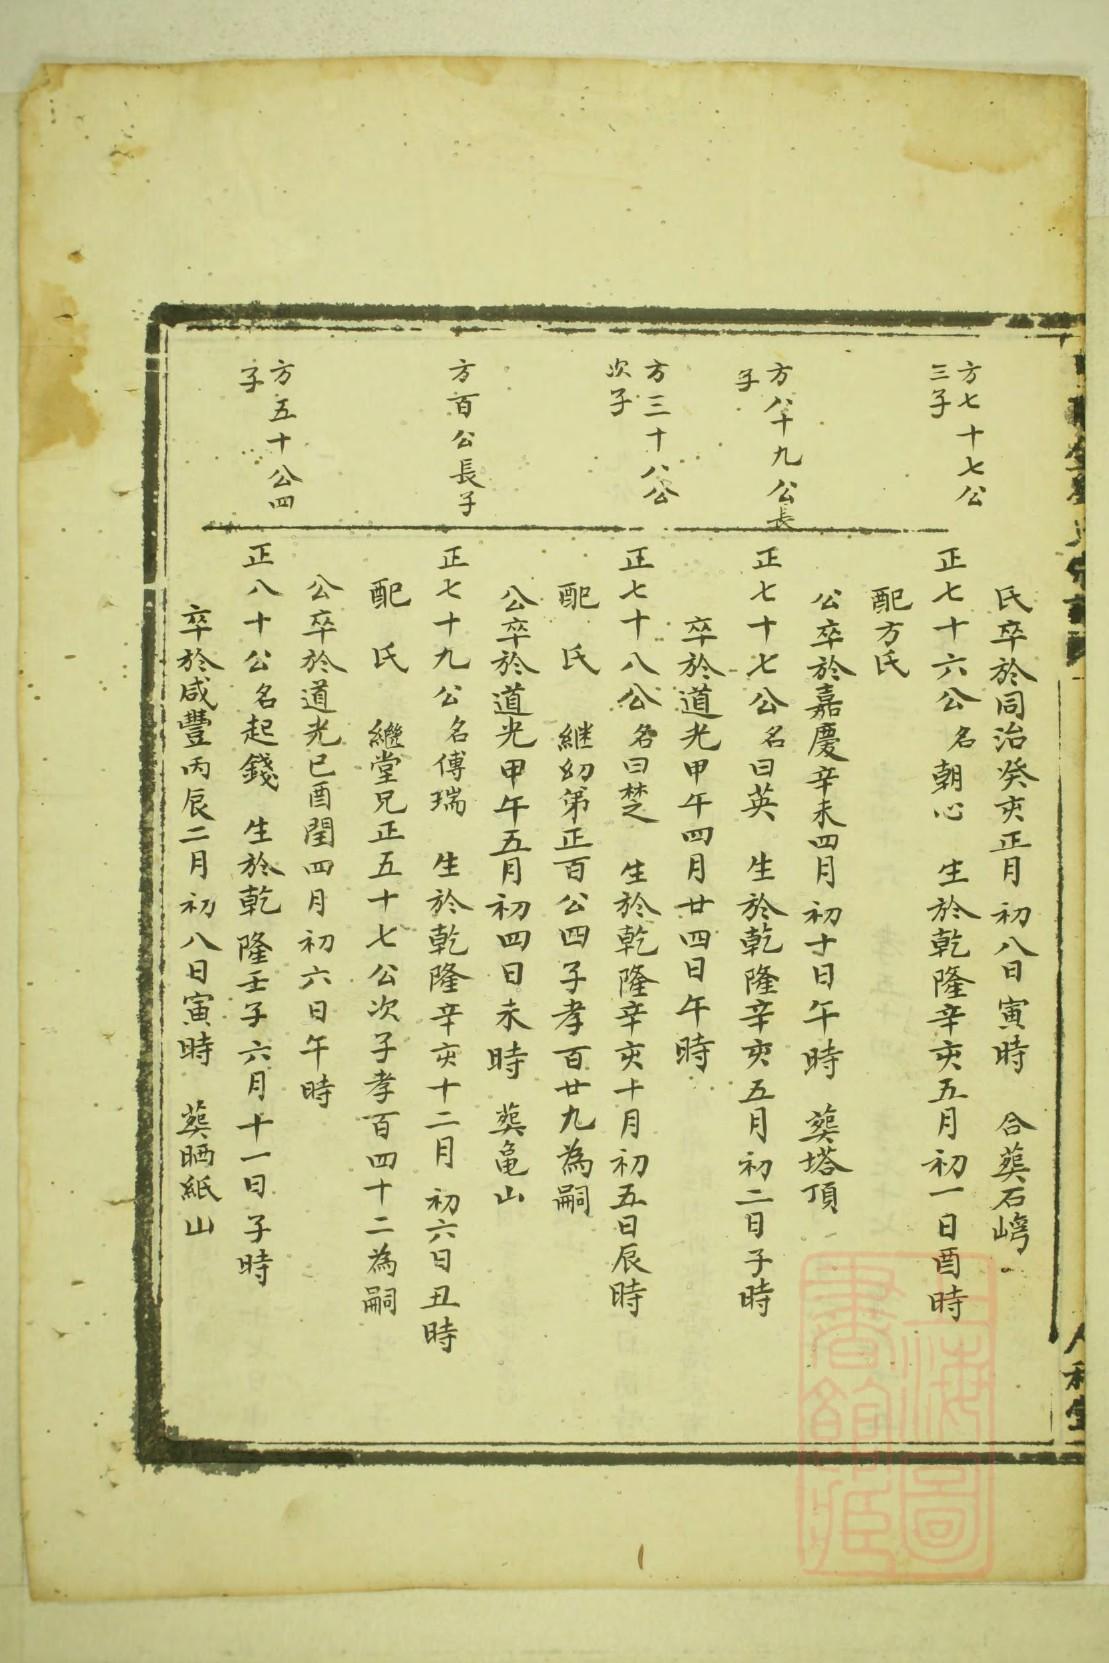 氏卒於同治癸亥正月初八日寅時 合葬石嶹
方七十七公
三子
正七十六公名朝心 生於乾隆辛亥五月初一日酉時
配方氏
公卒於嘉慶辛未四月初十日午時 葬塔頂
方八十九公長
子
正七十七公名曰英 生於乾隆辛亥五月初二日子時
卒於道光甲午四月廿四日午時
方三十八公
次子
正七十八公名曰楚 生於乾隆辛亥十月初五日辰時
配 氏 継幼弟正百公四子孝百廿九為嗣
公卒於道光甲午五月初四日未時 葬亀山
方百公長子
正七十九公名傳瑞 生於乾隆辛亥十二月初六日丑時
配 氏 繼堂兄正五十七公次子孝百四十二為嗣
公卒於道光已酉閏四月初六日午時
方五十公四
子
正八十公名起錢 生於乾隆壬子六月十一日子時
卒於咸豐丙辰二月初八日寅時 葬晒紙山
上海圖
書館藏